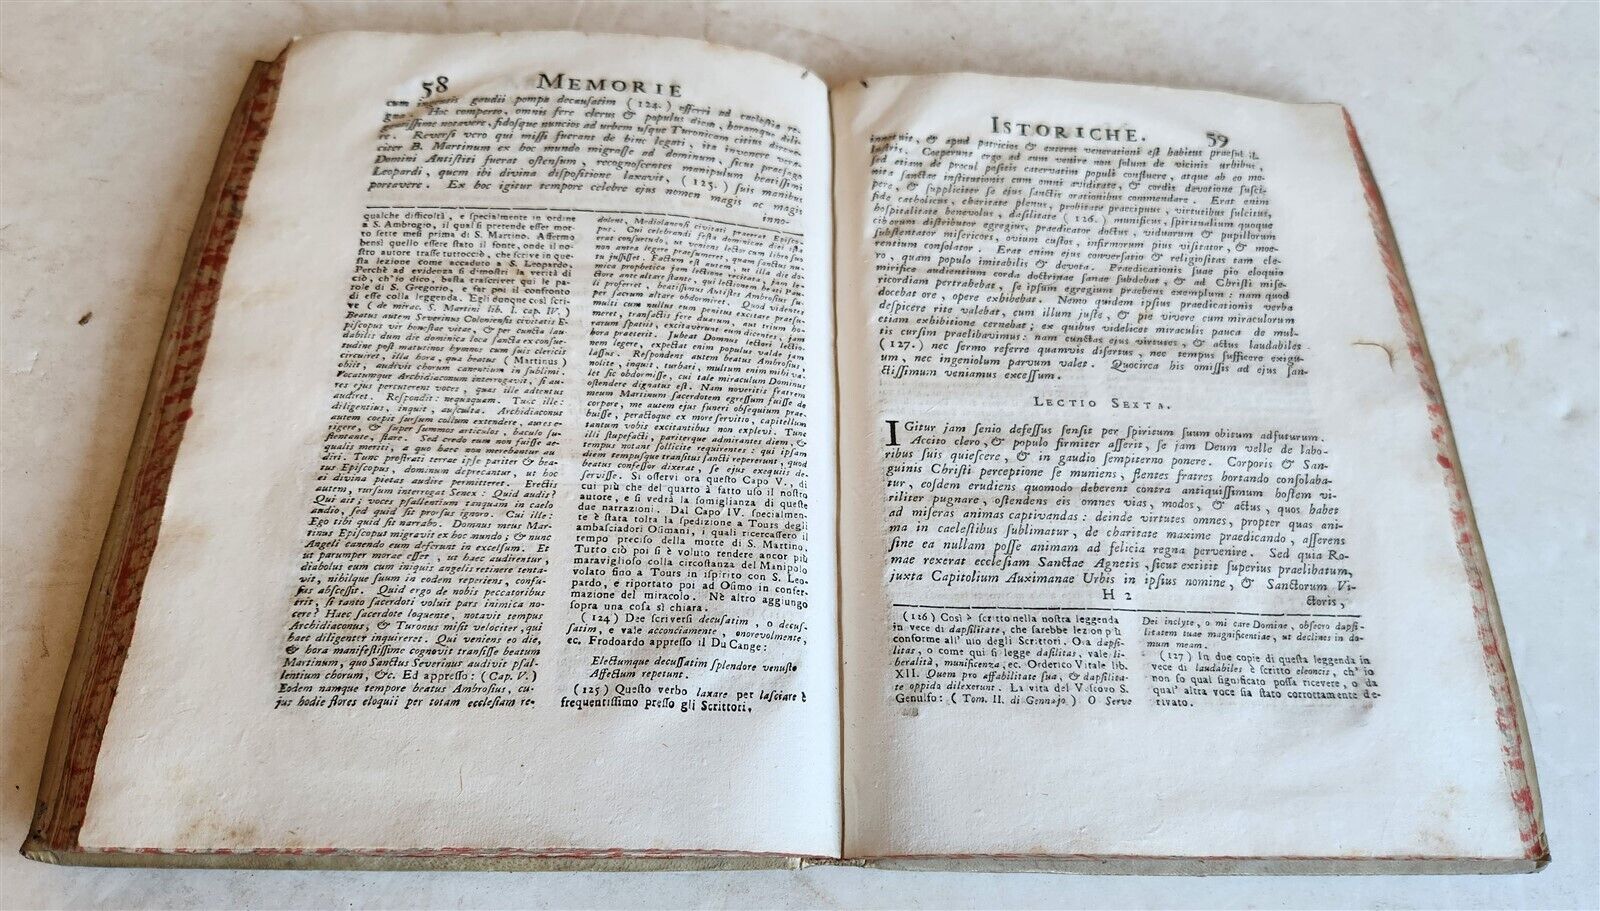 58 MEMORIE
cum ingentis gaudii pompa decausatim (124.) efferri ad ecclesiam re-
gna. Hoc comperto, omnis fere clerus & populus diem, horamque dili-
gentissime notavere, fidosque nuncios ad urbem usque Turonicam citius direxe-
re. Reversi vero qui missi fuerant de hinc legati, ita invenere vera-
citer B. Martinum ex hoc mundo migrasse ad dominum, sicut praesago
Domini Antistiti fuerat ostensum, recognoscentes manipulum beatissimi
Leopardi, quem ibi divina dispositione laxavit, (125.) suis manibus
portavere. Ex hoc igitur tempore celebre ejus nomen magis ac magis
inno-
qualche difficoltà, e specialmente in ordine
a S. Ambrogio, il qual si pretende esser mor-
to sette mesi prima di S. Martino. Affermo
bensì quello essere stato il fonte, onde il no-
stro autore trasse tuttocciò, che scrive in que-
sta lezione come accaduto a S. Leopardo.
Perchè ad evidenza si dimostri la verità di
ciò, ch'io dico, basta trascriver qui le pa-
role di S. Gregorio, e far poi il confronto
di esse colla leggenda. Egli dunque così scri-
ve (de mirac. S. Martini lib. I. cap. IV.)
Beatus autem Severinus Coloniensis civitatis E-
piscopus vir honestae vitae, & per cuncta lau-
dabilis dum die dominica loca sancta ex consue-
tudine post matutinos hymnos cum suis clericis
circuiret, illa hora, qua beatus (Martinus)
obiit, audivit chorum canentium in sublimi.
Vocatumque Archidiaconum interrogavit, si au-
res ejus percuterent voces, quas ille adtentus
audiret. Respondit: nequaquam. Tunc ille:
diligentius, inquit, ausculta. Archidiaconus
autem coepit sursum collum extendere, aures e-
rigere, & super summos articulos, baculo su-
stentante, stare. Sed credo eum non fuisse ae-
qualis meriti, a quo haec non merebantur au-
diri. Tunc prostrati terrae ipse pariter & bea-
tus Episcopus, dominum deprecantur, ut hoc
ei divina pietas audire permitteret. Erectis
autem, rursum interrogat Senex: Quid audis?
Qui ait; voces psallentium tanquam in caelo
audio, sed quid sit prorsus ignoro. Cui ille:
Ego tibi quid sit narrabo. Domnus meus Mar-
tinus Episcopus migravit ex hoc mundo; & nunc
Angeli canendo eum deferunt in excelsum. Et
ut parumper morae esset, ut haec audirentur,
diabolus eum cum iniquis angelis retinere tenta-
vit, nihilque suum in eodem reperiens, confu-
sus abscessit. Quid ergo de nobis peccatoribus
erit, si tanto sacerdoti voluit pars inimica no-
cere? Haec sacerdote loquente, notavit tempus
Archidiaconus, & Turonus misit velociter, qui
haec diligenter inquireret. Qui veniens eo die,
& hora manifestissime cognovit transisse beatum
Martinum, quo Sanctus Severinus audivit psal-
lentium chorum, &c. Ed appresso: (Cap. V.)
Eodem namque tempore beatus Ambrosius, cu-
jus hodie flores eloquii per totam ecclesiam re-
dolent, Mediolanensi civitati praeerat Episco-
pus. Cui celebrandi festa dominicae diei ista
erat consuetudo, ut veniens lector cum libro
non antea legere praesumeret, quam sanctus nu-
tu jussisset. Factum est autem, ut illa die do-
minica prophetica jam lectione recitata, jam le-
ctore ante altare stante, qui lectionem beati Pau-
li proferret, beatissimus Antistes Ambrosius su-
per sacrum altare obdormiret. Quod videntes
multi cum nullus eum penitus excitare praesu-
meret, transactis fere duarum, aut trium ho-
rarum spatiis, excitaverunt eum dicentes, jam
hora praeterit. Jubeat Domnus lectori lectio-
nem legere, expectat enim populus valde jam
lassus. Respondens autem beatus Ambrosius:
nolite, inquit, turbari, multum enim mihi va-
let sic obdormisse, cui tale miraculum Dominus
ostendere dignatus est. Nam noveritis fratrem
meum Martinum sacerdotem egressum fuisse de
corpore, me autem ejus funeri obsequium prae-
buisse, peractoque ex more servitio, capitellum
tantum vobis excitantibus non explevi. Tunc
illi stupefacti, pariterque admirantes diem, &
tempus notant sollicite requirentes: qui ipsam
diem tempusque transitus sancti repererunt, quod
beatus confessor dixerat, se ejus exequiis de-
servisse. Si osservi ora questo Capo V., di
cui più che del quarto à fatto uso il nostro
autore, e si vedrà la somiglianza di queste
due narrazioni. Dal Capo IV. specialmen-
te è stata tolta la spedizione a Tours degli
ambasciadori Osimani, i quali ricercassero il
tempo preciso della morte di S. Martino.
Tutto ciò poi si è voluto rendere ancor più
maraviglioso colla circostanza del Manipolo
volato fino a Tours in ispirito con S. Leo-
pardo, e riportato poi ad Osimo in confer-
mazione del miracolo. Nè altro aggiungo
sopra una cosa sì chiara.
(124) Dee scriversi decusatim, o decus-
satim, e vale acconciamente, onorevolmente,
ec. Frodoardo appresso il Du Cange:
Electumque decussatim splendore venusto
Affectum repetunt.
(125) Questo verbo laxare per lasciare è
frequentissimo presso gli Scrittori,
ISTORICHE. 59
& apud patricios & caeteros venerationi est habitus praesul il-
lustris. Coeperunt ergo ad eum venire non solum de vicinis urbibus,
sed etiam de procul positis catervatim populi constuere, atque ab eo mo-
nita sanctae institutionis cum omni aviditate, & cordis devotione susci-
pere, & suppliciter se ejus sanctis orationibus commendare. Erat enim
fide catholicus, charitate plenus, probitate praecipuus, virtutibus fulcitus,
hospitalitate benevolus, dapsilitate (126.) munificus, spiritualium quoque
ciborum distributor egregius, praedicator doctus, viduarum & pupillorum
substentator misericors, ovium custos, infirmorum pius visitator, & moe-
rentium consolator. Erat enim ejus conversatio & religiositas tam cle-
ro, quam populo imitabilis & devota. Praedicationis suae pio eloquio
mirifice audientium corda doctrinae sanae subdebat, & ad Christi mise-
ricordiam pertrahebat, se ipsum egregium praebens exemplum: nam quod
docebat ore, opere exhibebat. Nemo quidem ipsius praedicationis verba
despicere rite valebat, cum illum juste, & pie vivere cum miraculorum
etiam exhibitione cernebat; ex quibus videlicet miraculis pauca de mul-
tis cursim praelibavimus: nam cunctas ejus virtutes, & actus laudabiles
(127.) nec sermo referre quamvis disertus, nec tempus sufficere exigu-
um, nec ingeniolum parvum valet. Quocirca his omissis ad ejus san-
ctissimum veniamus excessum.
LECTIO SEXTA.
IGitur jam senio defessus sensit per spiritum suum obitum adfuturum.
Accito clero, & populo firmiter asserit, se jam Deum velle de labo-
ribus suis quiescere, & in gaudio sempiterno ponere. Corporis & San-
guinis Christi perceptione se muniens, flentes fratres hortando consolaba-
tur, eosdem erudiens quomodo deberent contra antiquissimum hostem vi-
riliter pugnare, ostendens eis omnes vias, modos, & actus, quos habet
ad miseras animas captivandas: deinde virtutes omnes, propter quas ani-
ma in caelestibus sublimatur, de charitate maxime praedicando, asserens
sine ea nullam posse animam ad felicia regna pervenire. Sed quia Ro-
mae rexerat ecclesiam Sanctae Agnetis, sicut extitit superius praelibatum,
juxta Capitolium Auximanae Urbis in ipsius nomine, & Sanctorum Vi-
H 2 ctoris,
(126) Così è scritto nella nostra leggenda
in vece di dapsilitate, che sarebbe lezion più
conforme all'uso degli Scrittori. Ora dapsi-
litas, o come qui si legge dasilitas, vale li-
beralità, munificenza, ec. Orderico Vitale lib.
XII. Quem pro affabilitate sua, & dapsilita-
te oppida dilexerunt. La vita del Vescovo S.
Genulfo: (Tom. II. di Gennajo) O Serve
Dei inclyte, o mi care Domine, obsecro dapsi-
litatem tuae magnificentiae, ut declines in do-
mum meam.
(127) In due copie di questa leggenda in
vece di laudabiles è scritto eleoncis, ch'io
non so qual significato possa ricevere, o da
qual' altra voce sia stato corrottamente de-
rivato.